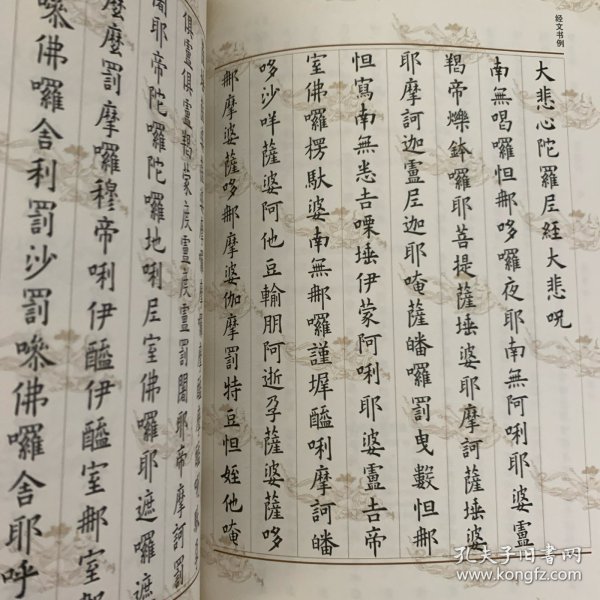 经文书例
大悲心陀羅尼經大悲咒
南無喝囉怛那哆囉夜耶南無阿唎耶婆盧
羯帝爍鉢囉耶菩提薩埵婆耶摩訶薩埵婆
耶摩訶迦盧尼迦耶唵薩皤囉罰曳數怛那
怛寫南無悉吉嘌埵伊蒙阿唎耶婆盧吉帝
室佛囉楞馱婆南無那囉謹墀醯唎摩訶皤
哆沙咩薩婆阿他豆輸朋阿逝孕薩婆薩哆
那摩婆薩哆那摩婆伽摩罰特豆怛姪他唵
俱盧俱盧羯蒙度盧度盧罰闍耶帝摩訶罰
闍耶帝陀囉陀囉地唎尼室佛囉耶遮囉遮
麼麼罰摩囉穆帝唎伊醯伊醯室那室
嘇佛囉舍利罰沙罰嘇佛囉舍耶呼
孔夫子旧书网
www.kongfz.com